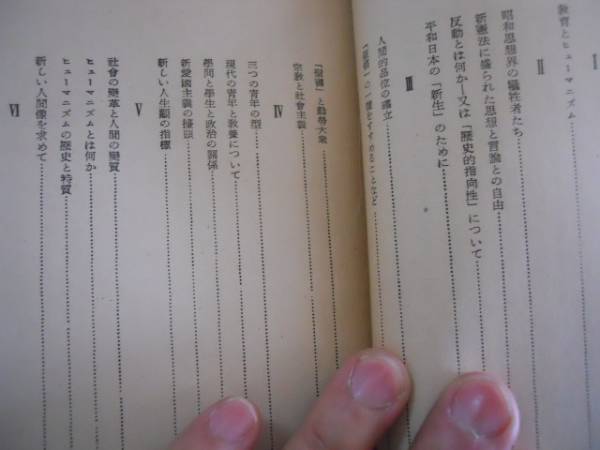 I
教育とヒューマニズム
II
昭和思想界の犠牲者たち
新憲法に盛られた思想と言論との自由
反動とは何か―又は「歴史的指向性」について
平和日本の「新生」のために
III
人間的品位の確立
をすすめることなど
「愛國」と勤勞大衆
宗教と社會主義
IV
三つの青年の型
現代の青年と教養について
學問と學生と政治の關係
新愛國主義の提唱
新しい人生觀の指標
V
社會の變革と人間の變質
ヒューマニズムとは何か
ヒューマニズムの歴史と特質
新しい人間像を求めて
VI